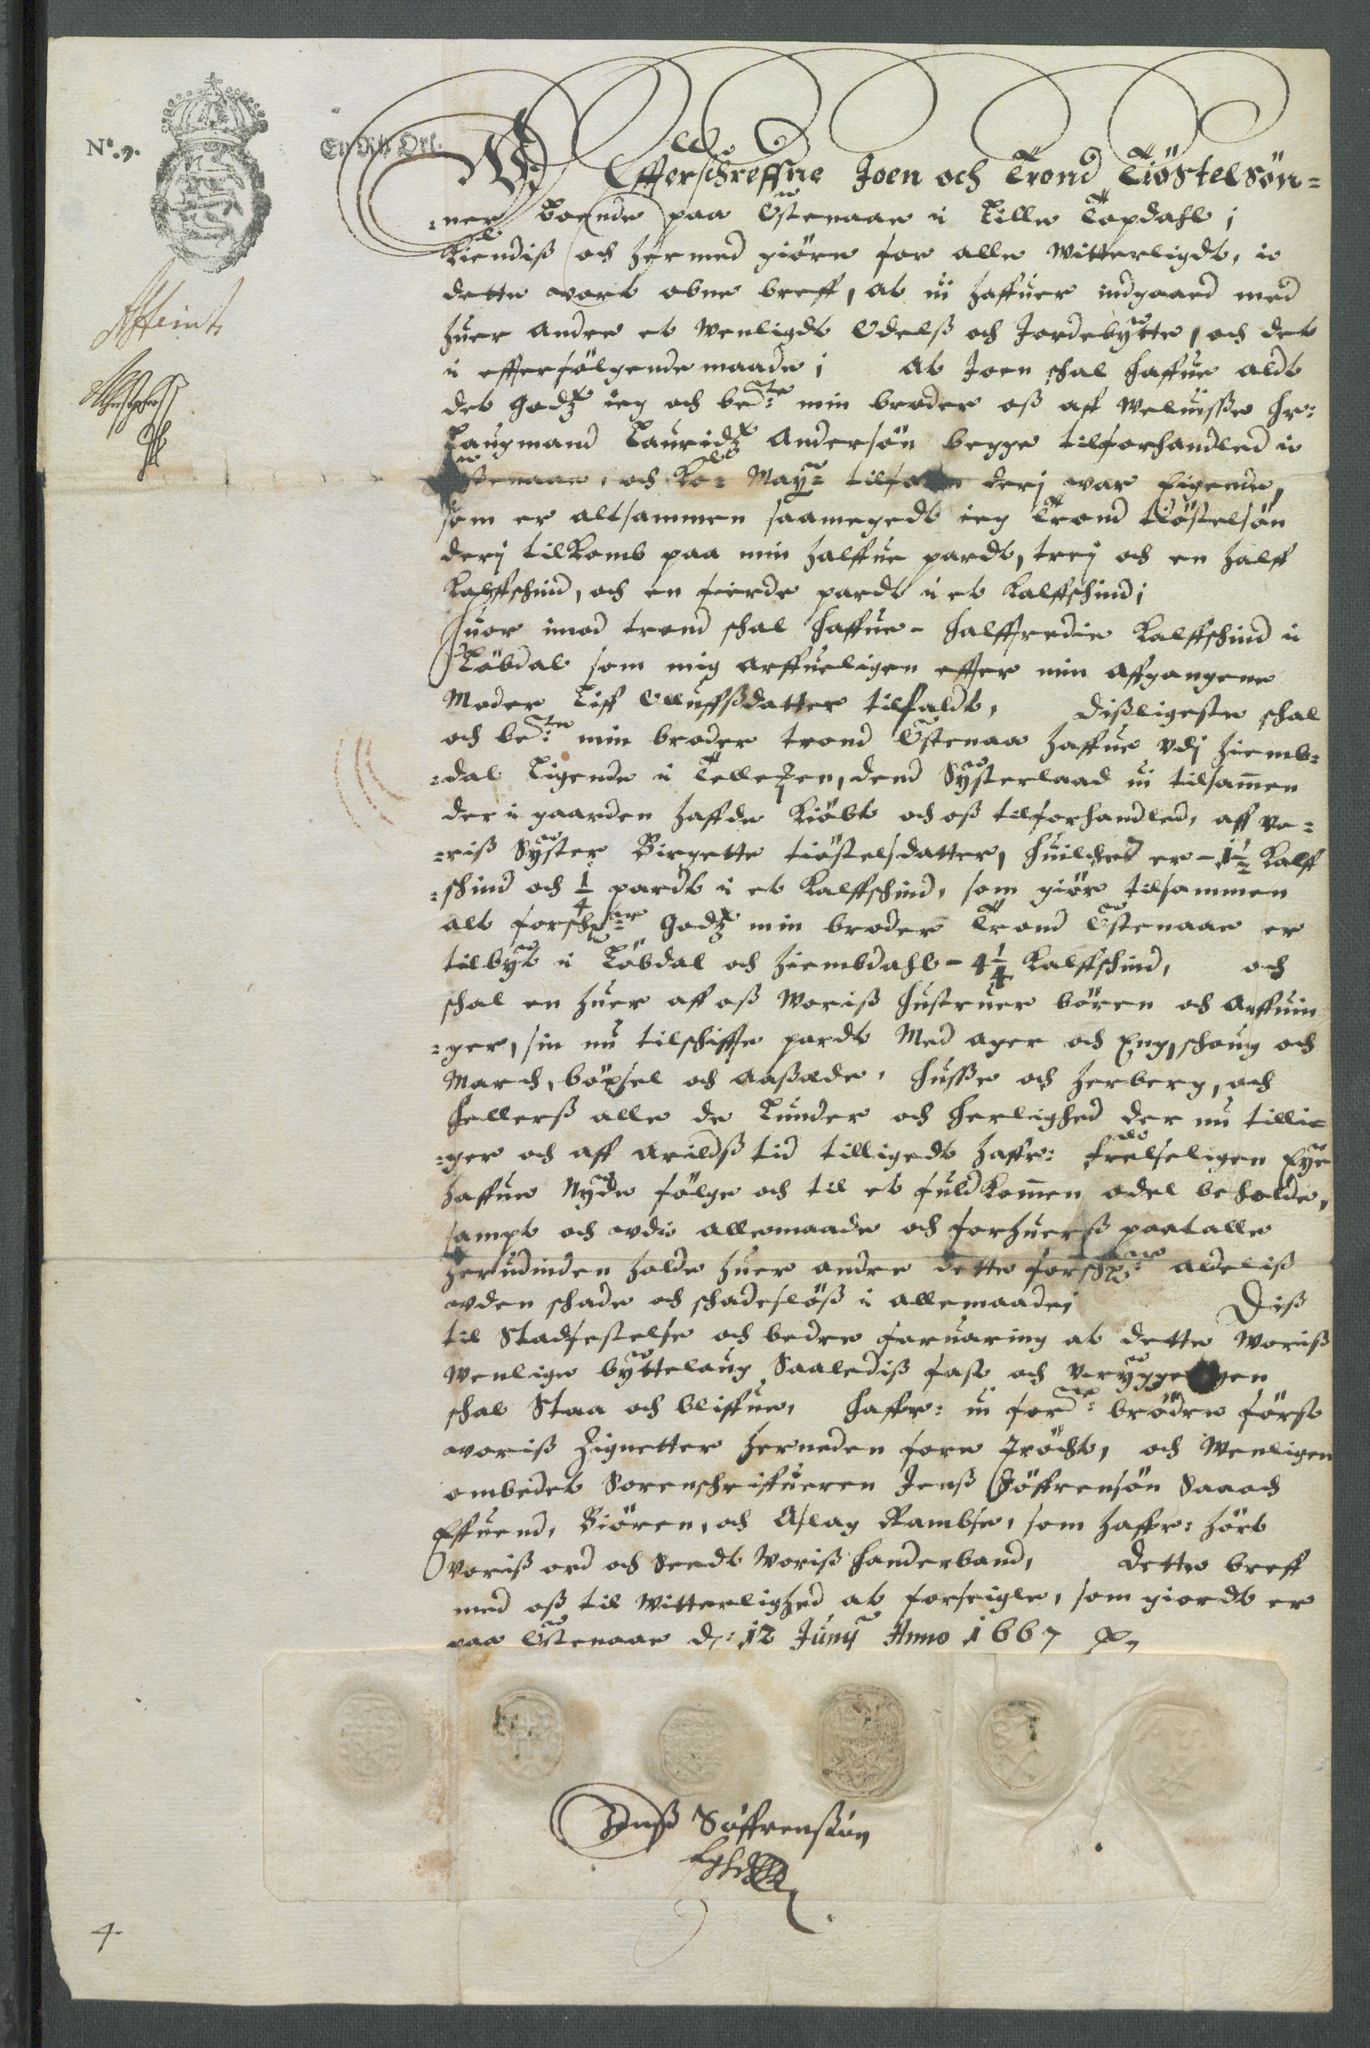 N°. 9.
En Rix Ort.
Wj Effterschreffne Joen och Trond Tiöstelsön=
=ner Boende paa Östenaae i Lille Topdahl;
Kiendiß och hermed giöre for alle Witterligdt, i
dette wort obne breff, at wi haffuer indgaaed med
huer andre et wenligdt Odelß och Jordebytte, och det
i effterfölgende maade; At Joen schal haffue aldt
det godz ieg och bete: min broder oß aff welwiße Hr:
Laugmand Lauridz Andersön begge tilforhandled i
Östenaae, och Ko: May: tilforn derj war Eigende,
som er altsammen saamegedt ieg Trond tiöstelsön
derj tilkomb paa min halffue pardt, trej och en halff
Kalffschind, och en fierde pardt i et Kalffschind;
Huor imod trond schal haffue - halffredie Kalffschind i
Töbdal som mig arffueligen effter min affgangene
Moder Liff Olluffßdatter tilfaldt, dißligeste schal
och bete: min broder trond Östenaae haffue vdj hiemb=
=dal Ligende i Tellegen, dend Systerlaad wi tilsamen
der i gaarden haffde Kiöbt och oß tilforhandled, aff vo=
=riß Syster Birgette tiöstelsdatter, huilchet er - 1½ Kalff
=schind och ¼ pardt i et Kalffschind, som giör tilsammen
alt forschr: godz min broder Trond Östenaae er
tilbyt i Töbdal och hiembdahl - 4¼ Kalffschind, och
schal en huer aff oß Woriß hustruer bören och Arffuin
=ger, sin nu tilschiffte pardt Med ager och Eng, schoug och
March, böxsel och aaßæde, huße och herberg, och
hellerß alle de Lunder och herlighed der nu tilli=
=ger och aff arildß tid tilligedt haffr: frelseligen Eye
haffue Nyde fölge och til et fuldkomen odel beholde,
sampt och vdi allemaade och forhuerß paatalle
herudinden holde huer andre dette forschr: aldeliß
vden schade och schadeslöß i allemaade; Diß
til Stadfestelse och bedre foruaring at dette Woriß
Wenlige byttelaug Saalediß fast och vryggeligen
schal Staa och bliffue, haffr: wi forde: brödre först
woriß Zignetter herneden fore tröcht, och Wenligen
ombedet Sorenschriffueren Jenß Söffrensön Saaoch
Effuend, Biören, och Aslag Rambse, som haffr: hört
voriß ord och Seedt Woriß handerband, dette breff
med oß til Witterlighed at forseigle, som giordt er
paa Östenaae d: 12 Junij Anno 1667
Jenß Söffrensön
4.